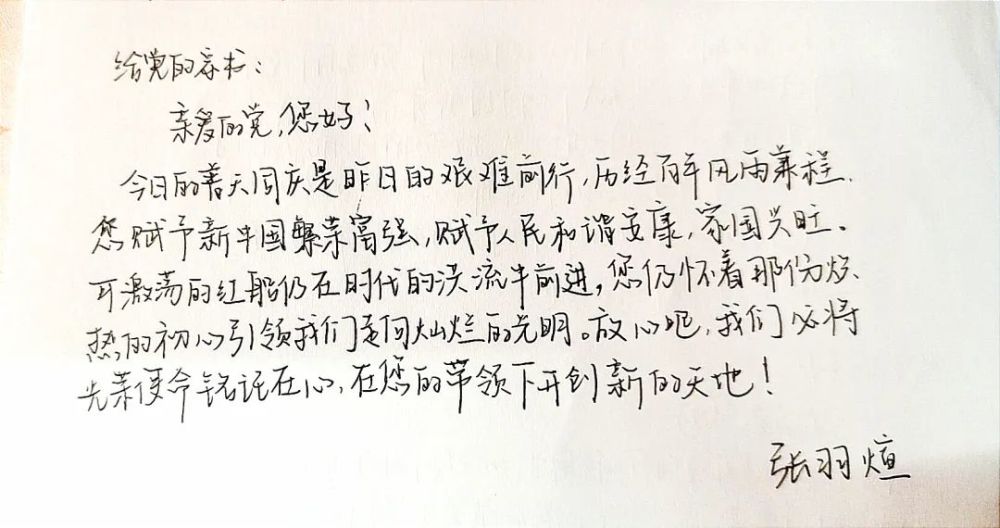 给党的家书：
亲爱的党，您好！
今日的普天同庆是昨日的艰难前行，历经百年风雨兼程，
您赋予新中国繁荣富强，赋予人民和谐安康，家国兴旺。
可激荡的红船仍在时代的洪流中前进，您仍怀着那份炽
热的初心引领我们走向灿烂的光明。放心吧，我们必将
光荣使命铭记在心，在您的带领下开创新的天地！
张羽煊